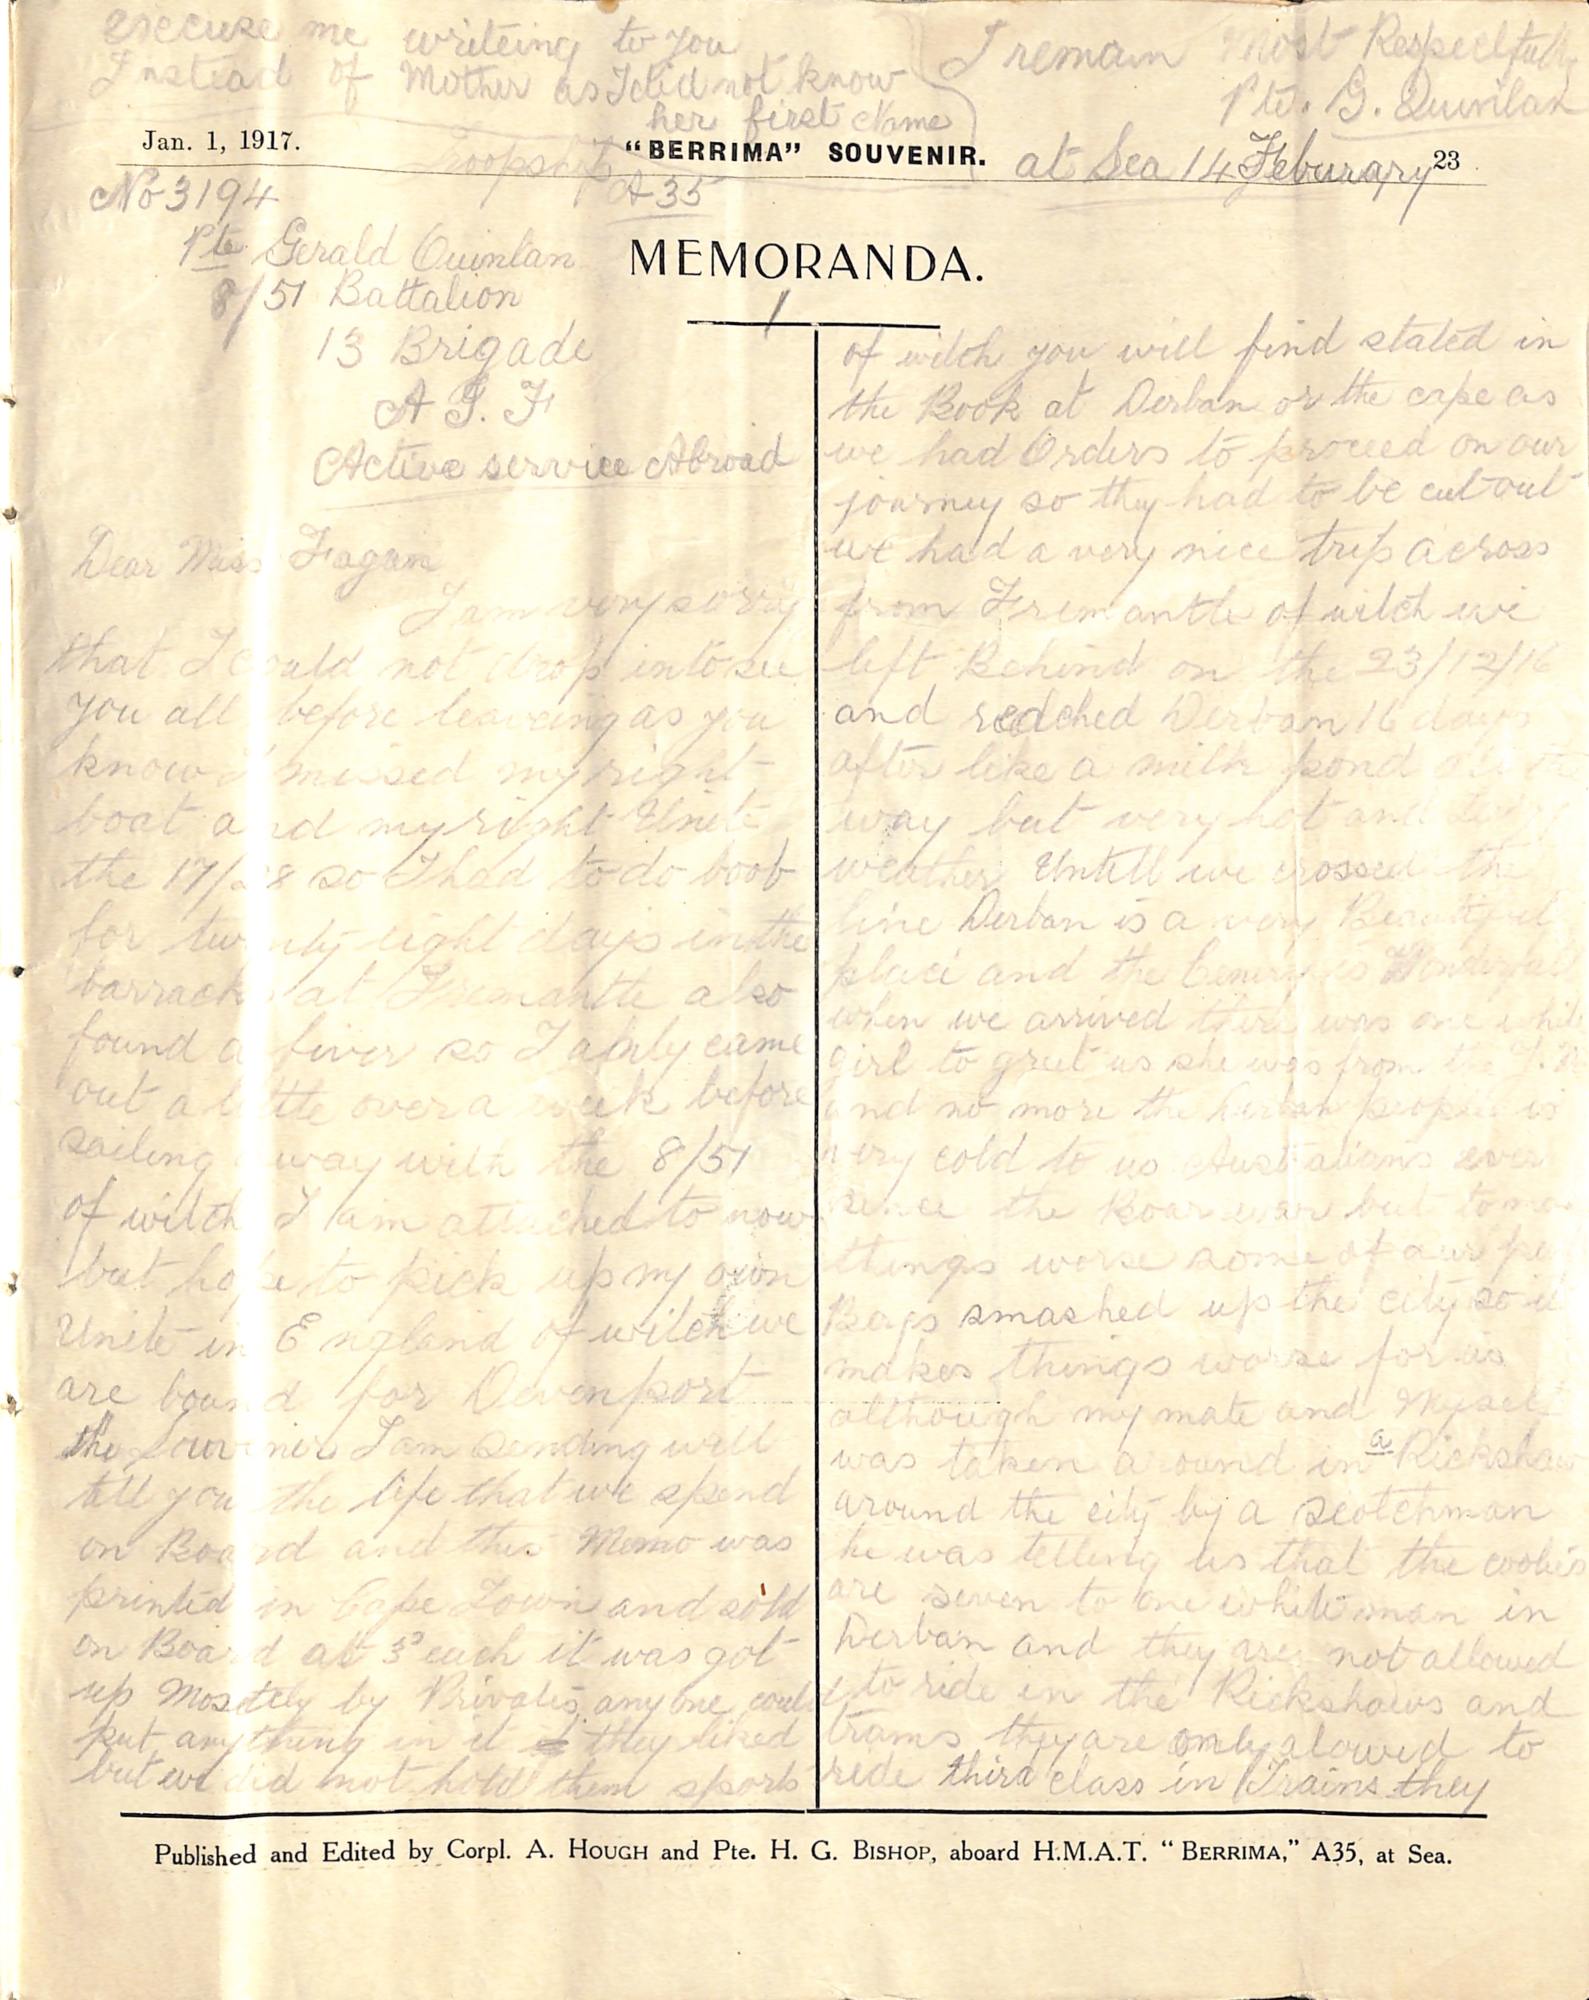 excuze me writeing to you
Instead of Mother as I did not know
her first Name
I remain Most Respectfully
Pte. G. Quinlan
Jan. 1, 1917.
"BERRIMA" SOUVENIR.
23
Troopship
A35
at Sea 14 Feburary
No 3194
Pte Gerald Quinlan
8/51 Battalion
13 Brigade
A I. F
Active service Abroad
MEMORANDA.
1
Dear Miss Fagan
I am very sorry
that I could not drop into see
you all before leaveing as you
know I missed my right
boat and my right Unite
the 17/28 so I had to do boob
for twenty eight days in the
barracks at Fremantle also
found a fiver so I only came
out a little over a week before
sailing away with the 8/51
of witch I am attached to now
but hope to pick up my own
Unite in England of witch we
are bound for Devenport
the Souvenir I am sending will
tell you the life that we spend
on Board and this Memo was
printed in Cape Town and sold
on Board at 3° each it was got
up Mostely by Privates, any one could
put anything in it they liked
but we did not hold them sports
of witch you will find stated in
the Book at Derban or the cape as
we had Orders to proceed on our
journey so they had to be cut out
we had a very nice trip across
from Fremantle of witch we
left Behind on the 23/12/16
and reached Derban 16 days
after like a milk pond all the
way but very hot and
weather Untill we crossed the
line Derban is a very Beautiful
place and the Cenery is Wonderfull
when we arrived there was one white
girl to greet us she was from the
and no more the Durban people is
very cold to us Australians ever
sence the Boar war but to make
things worse some of our
Boys smashed up the city so it
makes things worse for us
although my mate and Myself
was taken around in a Rickshaw
around the city by a scotchman
he was telling us that the coolies
are seven to one white man in
Derban and they are not allowed
to ride in the Rickshaws and
trams they are only alowed to
ride third class in Trains they
Published and Edited by Corpl. A. HOUGH and Pte. H. G. BISHOP, aboard H.M.A.T. "BERRIMA," A35, at Sea.